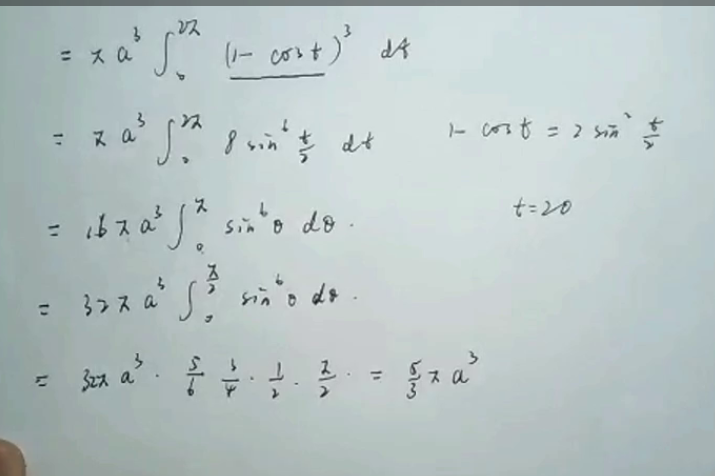 = π a³ ∫₀^{2π} (1 - cos t)³ dt
= π a³ ∫₀^{2π} 8 sin⁶ t/2 dt    1 - cos t = 2 sin² t/2
= 16 π a³ ∫₀^{π} sin⁶ θ dθ.    t = 2θ
= 32 π a³ ∫₀^{π/2} sin⁶ θ dθ.
= 32π a³ · 5/6 · 3/4 · 1/2 · π/2 · = 5/3 π a³